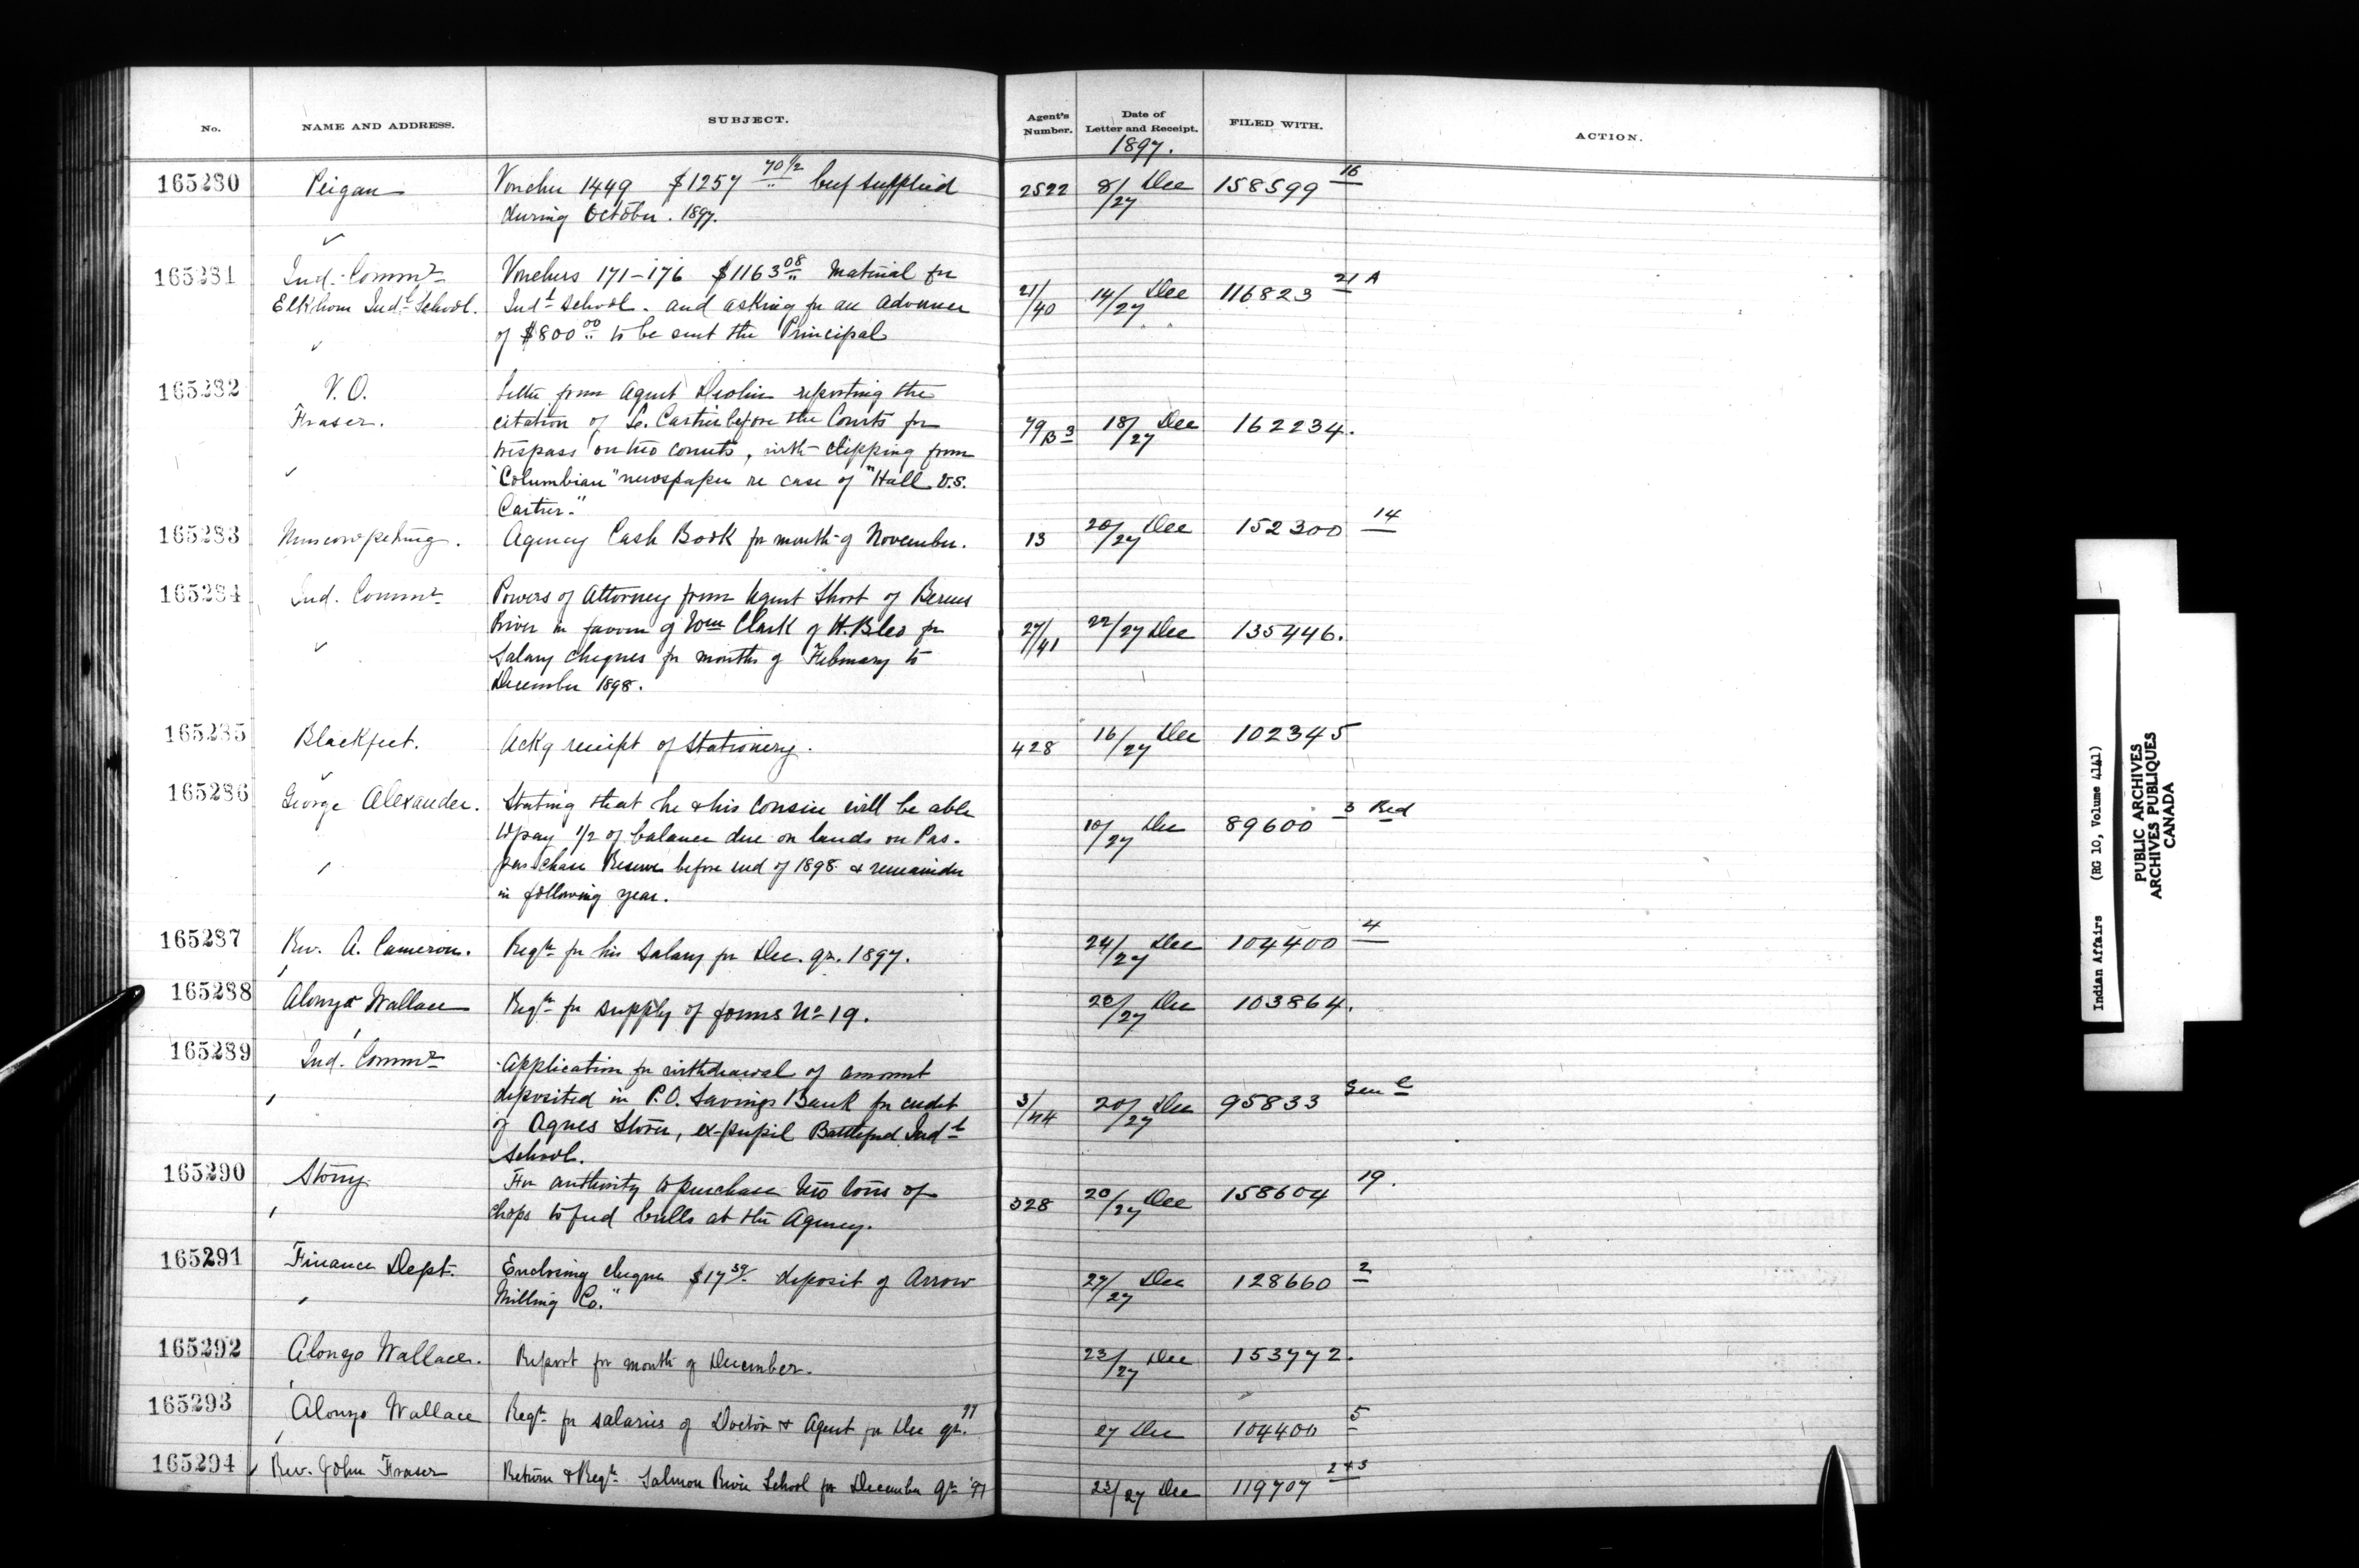 No. NAME AND ADDRESS. SUBJECT. Agent's Number. Date of Letter and Receipt. FILED WITH. ACTION.
1897.
165280 Peigan Voucher 1449 $1257 70 1/2 beef supplied 2522 8/27 Dec 158599 16
during October. 1897.
165281 Ind. Commr Vouchers 171-176 $1163.08 Material for 21/40 14/27 Dec 116823 21 A
Elkhorn Indl School. Indl School. and asking for an advance
of $800.00 to be sent the Principal
165282 V.O. Letter from Agent Devlin reporting the
Fraser. citation of Cartier before the Courts for 79/B3 18/27 Dec 162234.
trespass on two counts, with clipping from
"Columbian" newspaper re case of "Hall v.s.
Cartier."
165283 Muscowpetung. Agency Cash Book for month of November. 13 20/27 Dec 152300 14
165284 Ind. Commr Powers of Attorney from Agent Short of Berens
River in favour of Wm Clark of H.B.Co for 27/41 22/27 Dec 135446.
Salary cheques for months of February to
December 1898.
165285 Blackfeet. Ackg receipt of Stationery. 428 16/27 Dec 102345
165286 George Alexander. Stating that he & his cousin will be able
to pay 1/2 of balance due on lands on Pas- 10/27 Dec 89600 3 Red
pas-chase Reserve before end of 1898 & remainder
in following year.
165287 Rev. A. Cameron. Reqn for his Salary for Dec. qr. 1897. 24/27 Dec 104400 4
165288 Alonzo Wallace Reqn for supply of forms No 19. 23/27 Dec 103864.
165289 Ind. Commr Application for withdrawal of amount
deposited in P.O. Savings Bank for credit 3/44 20/27 Dec 95833 Gen l
of Agnes, ex-pupil Battleford Indl
School.
165290 Stony. For authority to purchase two tons of 328 20/27 Dec 158604 19.
chops to feed bulls at the Agency.
165291 Finance Dept. Enclosing cheque $17 deposit of Arrow 27/27 Dec 128660 2
Milling Co."
165292 Alonzo Wallace. Report for month of December. 23/27 Dec 153772.
165293 Alonzo Wallace Reqn for salaries of Doctor & Agent for Dec qr. 97 27 Dec 104400 5
165294 Rev. John Fraser Return & Reqn Salmon River School for December qr '97 23/27 Dec 119707 2 & 3
Indian Affairs (RG 10, Volume 4141)
PUBLIC ARCHIVES
ARCHIVES PUBLIQUES
CANADA